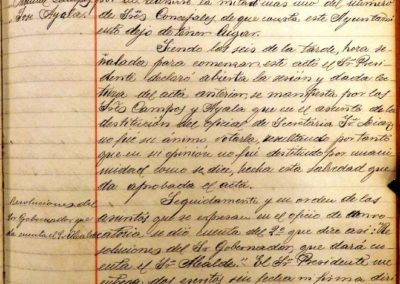 José Ayala
por no reunirse la mitad mas uno del número
de Sres Concejales de que consta este Ayuntami-
ento dejó de tener lugar.
Siendo las seis de la tarde, hora se-
ñalada para comenzar este acto el Sr Presi-
dente declaró abierta la sesión y dada lec-
tura del acta anterior, se manifestó por los
Sres Campos y Ayala que en el asunto de la
destitución del oficial de Secretaría Sr
no fué su ánimo votarla, resultando por tanto
que en su opinión no fué destituido por unani-
midad como se dice, hecha esta salvedad que-
da aprobada el acta.
Resoluciones del
Sr Gobernador que
da cuenta el Sr Alcalde
Seguidamente y en orden de los
asuntos que se expresan en el oficio de convo-
catoria, se dio cuenta del 2º que dice así: "Re-
soluciones del Sr Gobernador que dará cu-
enta el Sr Alcalde." El Sr Presidente ma-
dos sin fecha ni firma diri-